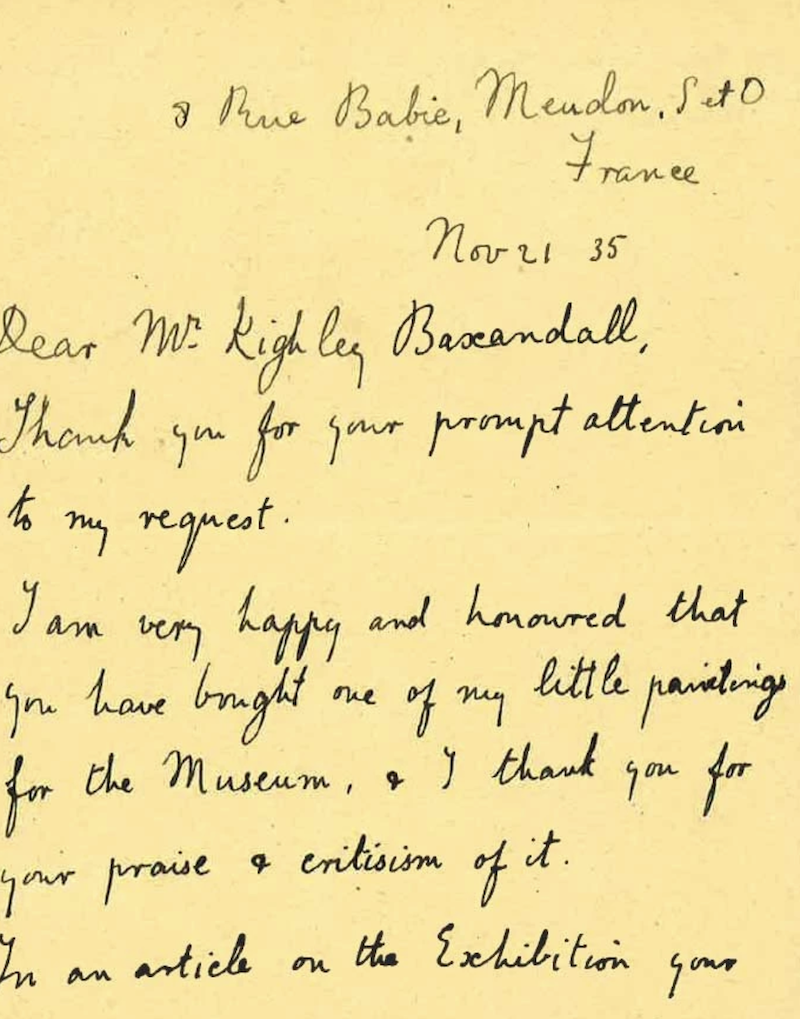 8 Rue Babie, Meudon. S et O
France
Nov 21 35
Dear Mr Kighley Baxandall,
Thank you for your prompt attention
to my request.
I am very happy and honoured that
you have bought one of my little paintings
for the Museum, & I thank you for
your praise & critisism of it.
In an article on the Exhibition your